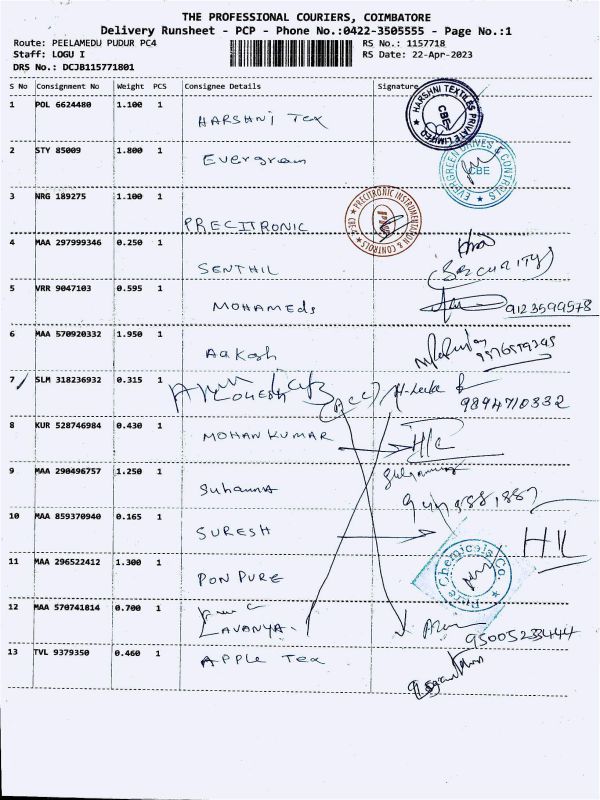 THE PROFESSIONAL COURIERS, COIMBATORE
Delivery Runsheet - PCP - Phone No.:0422-3505555 - Page No.:1
Route: PEELAMEDU PUDUR PC4 RS No.: 1157718
Staff: LOGU I RS Date: 22-Apr-2023
DRS No.: DCJB115771801
S No Consignment No Weight PCS Consignee Details Signature
1 POL 6624480 1.100 1 HARSHNI TEX
HARSHNI TEXTILES PRIVATE LIMITED
CBE
2 STY 85009 1.800 1 Evergreen
EVERGREEN DRIVES & CONTROLS
CBE
3 NRG 189275 1.100 1 PRECITRONIC
PRECITRONIC INSTRUMENTATION & CONTROLS
4 MAA 297999346 0.250 1 SENTHIL
(SECURITY)
5 VRR 9047103 0.595 1 MOHAMEDS
9123599578
6 MAA 570920332 1.950 1 Aakash
7 SLM 318236932 0.315 1
9894710332
8 KUR 528746984 0.430 1 MOHAN KUMAR H/C
9 MAA 290496757 1.250 1 Suhanna
10 MAA 859370940 0.165 1 SURESH
11 MAA 296522412 1.300 1 PON PURE
Pure Chemicals Co.
12 MAA 570741814 0.700 1 LAVANYA
95005233444
13 TVL 9379350 0.460 1 APPLE Tex